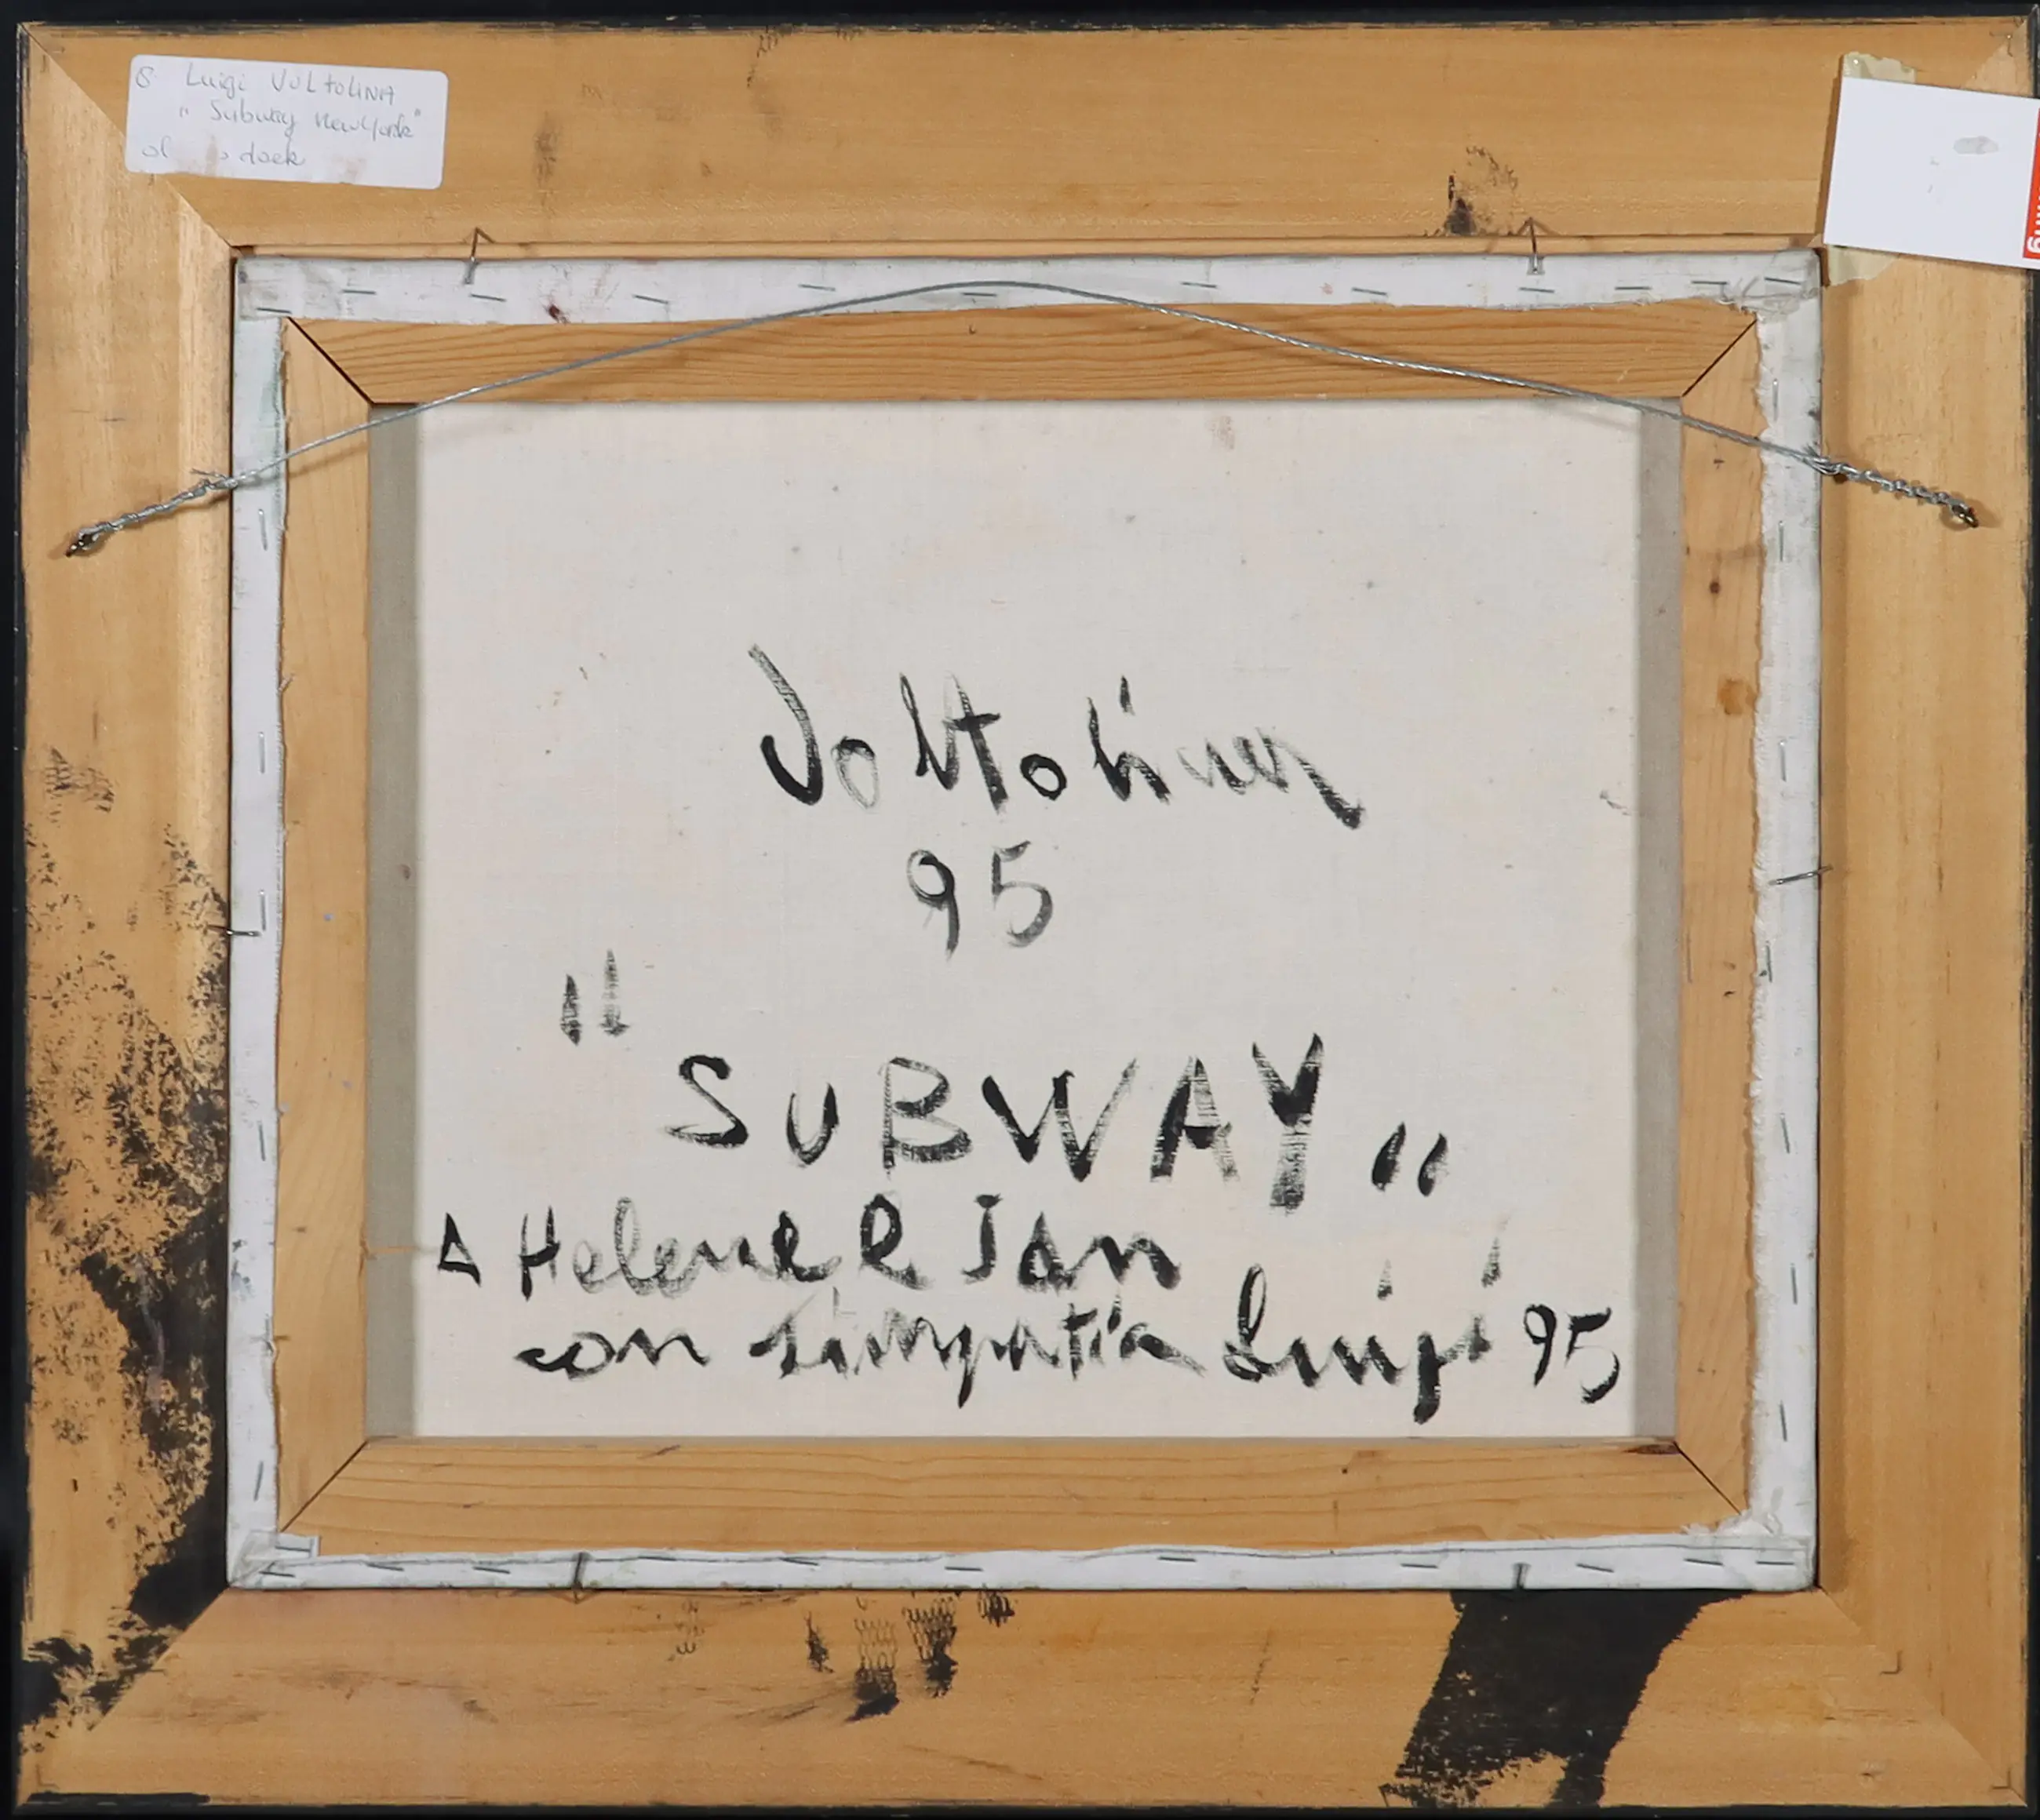 8 Luigi VOLTOLINA
"Subway New York"
doek
Voltolina
95
"SUBWAY"
A Helene e Jan
con simpatia Luigi 95